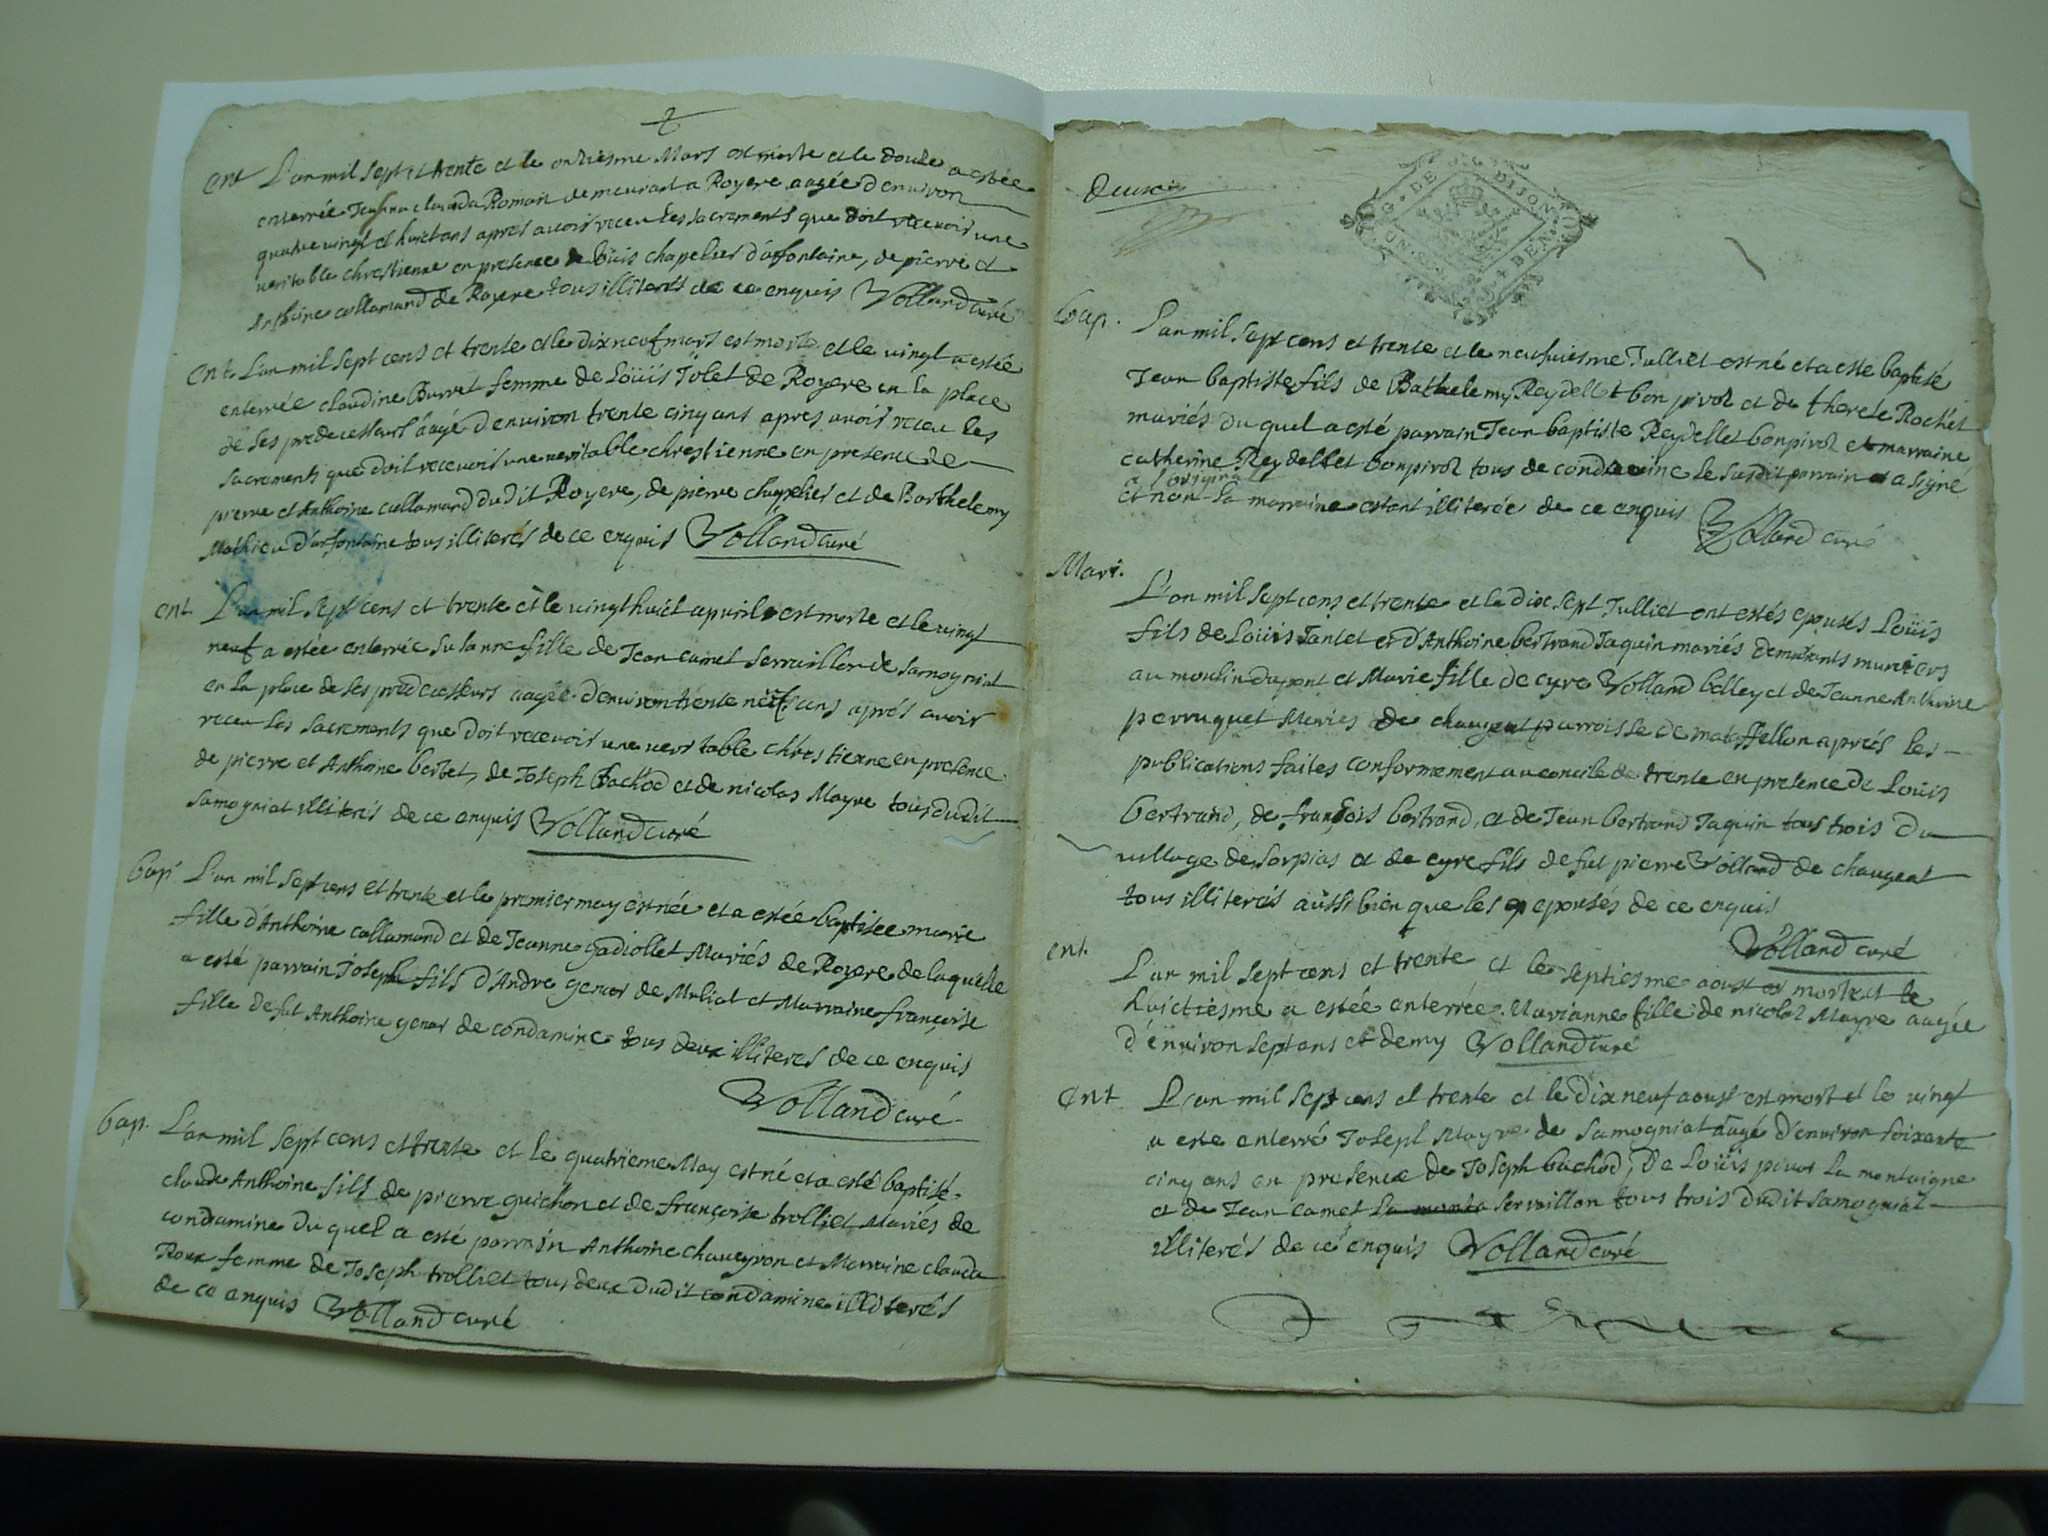 2
ent L'an mil sept et trente et le onziesme Mars est morte et le douze a estée
enterrée Jeanne clauda Romain demeurant a Royere aagée d'environ
quatre vingt et huict ans apres avoir receu les sacrements que doit recevoir une
veritable chrestienne en presence de Loüis chapelier d'arfontaine, de pierre et
Anthoine callamand de Royere tous illiterés de ce enquis Volland curé
Ent. L'an mil sept cens et trente et le dix neuf mars est morte et le vingt a estée
enterrée claudine Burret femme de Loüis Jolet de Royere en la place
de ses predecesseurs aagé d'environ trente cinq ans apres avoir receu les
sacrements que doit recevoir une veritable chrestienne en presence de
pierre et Anthoine callamand dudit Royere, de pierre chapelier et de Barthelemy
Mathieu d'arfontaine tous illiterés de ce enquis Volland curé
ent. L'an mil sept cens et trente et le vingt huict apvril est morte et le vingt
neuf a estée enterrée Susanne fille de Jean camet Servaillon de Samogniat
en la place de ses predecesseurs aagée d'environ trente neuf ans aprés avoir
receu les sacrements que doit recevoir une veritable chrestienne en presence
de pierre et Anthoine berbet, de Joseph Bachod et de nicolas Mayre tous dudit
Samogniat illiterés de ce enquis Volland curé
bap. L'an mil sept cens et trente et le premier may est née et a estée baptisee marie
fille d'Anthoine callamand et de Jeanne gadiollet Mariés de Royere de laquelle
a esté parrain Joseph fils d'Andre genos de Muliat et Marraine françoise
fille de fut Anthoine genos de condamine tous deux illiteres de ce enquis
Volland curé
bap. L'an mil sept cens et trente et le quatrieme May est né et a esté baptisé
claude Anthoine fils de pierre guichon et de françoise trolliet Mariés de
condamine du quel a esté parrain Anthoine chaveyron et Marraine clauda
Roux femme de Joseph trolliet tous deux dudit condamine illiterés
de ce enquis Volland curé
deuxis
G. DE DIJON
bap. L'an mil sept cens et trente et le neufviesme Julliet est né et a esté baptisé
Jean baptiste fils de Bathelemy Reydellet bon pivot et de therese Rochet
mariés du quel a esté parrain Jean baptiste Reydellet bonpivot et marraine
catherine Reydellet bonpivot tous de condamine le susdit parrain a signé
a l'original
et non la marraine estant illiterée de ce enquis
Volland curé
Mari.
L'an mil sept cens et trente et le dix sept Julliet ont estés epousés Loüis
fils de Loüis Tantet et d'Anthoine bertrand Jaquin mariés demeurants muniers
au moulin du pont et Marie fille de cyre Volland belley et de Jeanne Anthoine
perruquet Mariés de chaugeat parroisse de mataffellon aprés les
publications faites conformement au concile de trente en presence de Loüis
bertrand, de françois bertrand, et de Jean bertrand Jaquin tous trois du
village de Sorpias et de cyre fils de fut pierre Volland de chaugeat
tous illiterés aussi bien que les epousés de ce enquis
Volland curé
ent.
L'an mil sept cens et trente et le septiesme aoust est morte et le
huictiesme a estée enterrée Marianne fille de nicolas Mayre aagée
d'environ sept ans et demy Volland curé
Ent L'an mil sept cens et trente et le dix neuf aoust est mort et le vingt
a este enterré Joseph Mayre de Samogniat aagé d'environ soixante
cinq ans en presence de Joseph bachod, de Loüis pivot la montaigne
et de Jean camet Servaillon tous trois dudit Samogniat
illiterés de ce enquis Volland curé